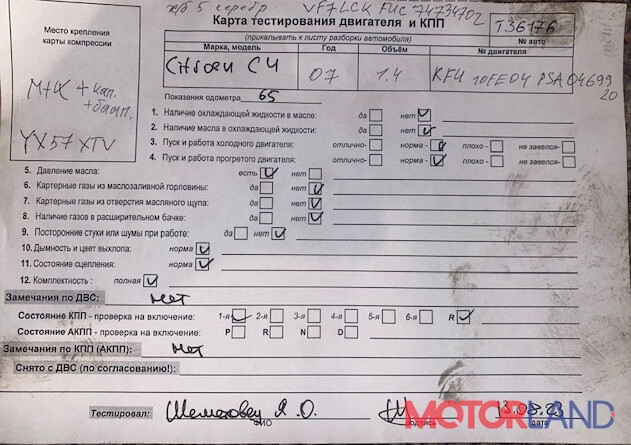 х/б 5 серебр VF7LCKFUC74734702
Карта тестирования двигателя и КПП
T36176
(прикалывать к листу разборки автомобиля)
№ авто
Место крепления карты компрессии
Марка, модель Год Объём № двигателя
Citroen C4 07 1.4 KFU 10FE04 PSA 04699
20
М+К + кап.
YX57 XTV
Показания одометра 65
1. Наличие охлаждающей жидкости в масле: да нет
2. Наличие масла в охлаждающей жидкости: да нет
3. Пуск и работа холодного двигателя: отлично- норма - плохо - не завелся-
4. Пуск и работа прогретого двигателя: отлично- норма - плохо - не завелся-
5. Давление масла: есть нет
6. Картерные газы из маслозаливной горловины: да нет
7. Картерные газы из отверстия масляного щупа: да нет
8. Наличие газов в расширительном бачке: да нет
9. Посторонние стуки или шумы при работе: да нет
10. Дымность и цвет выхлопа: норма
11. Состояние сцепления: норма
12. Комплектность: полная
Замечания по ДВС: нет
Состояние КПП - проверка на включение: 1-я 2-я 3-я 4-я 5-я 6-я R
Состояние АКПП - проверка на включение: P R N D
Замечания по КПП (АКПП): нет
Снято с ДВС (по согласованию!):
Тестировал: Я.О. 13.08.23
ФИО подпись дата
MOTORLAND